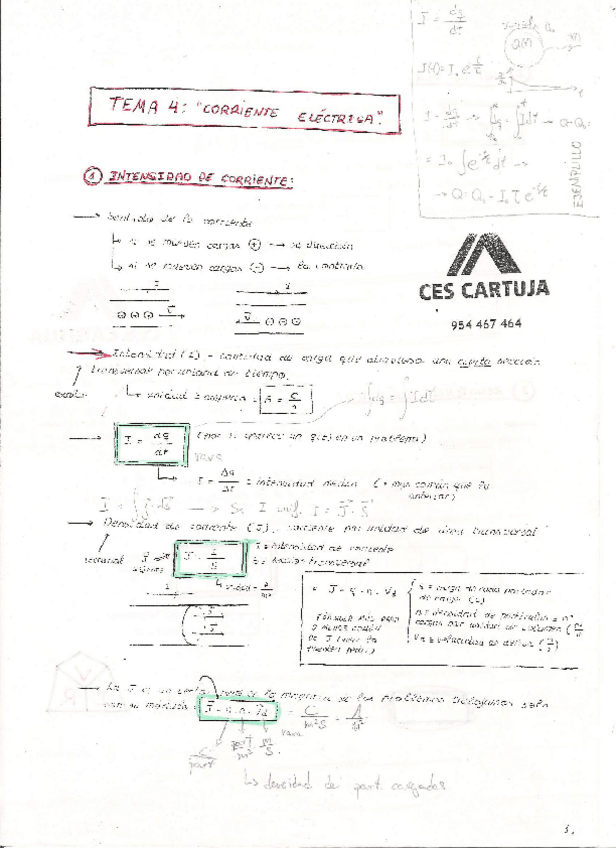 I = dq/dt
I(t) = I₀ e
EJEMPLILLO
TEMA 4: "CORRIENTE ELÉCTRICA".
① INTENSIDAD DE CORRIENTE:
→ Sentido de la corriente
↳ si se mueven cargas ⊕ → su dirección
↳ si se mueven cargas ⊖ → la contraria
CES CARTUJA
954 467 464
→ Intensidad (I) - cantidad de carga que atraviesa una cierta sección
transversal por unidad de tiempo.
escalar
↳ unidad: amperio = A = C/s
∫dq = ∫I dt
→ I = dq/dt (por si aparece un q(t) en un problema)
↳ I = Δq/Δt = intensidad media (+ más común que la anterior)
→ Densidad de corriente (J), corriente por unidad de área transversal
vectorial
J = I/S
I = intensidad de corriente
S = sección transversal
J = q · n · Vd
q = carga de cada portador
de carga (C)
n = densidad de partículas = nº
cargas por unidad de volumen
Vd = velocidad de deriva (m/s)
FÓRMULA MÁS RARA
Y MENOS COMÚN
DE J
→ La J es un vector, pero en la mayoría de los problemas trabajamos solo
con su módulo J = q · n · Vd = C/m²s = A/m²
part/m³ m/s
↳ densidad de part. cargadas
1.